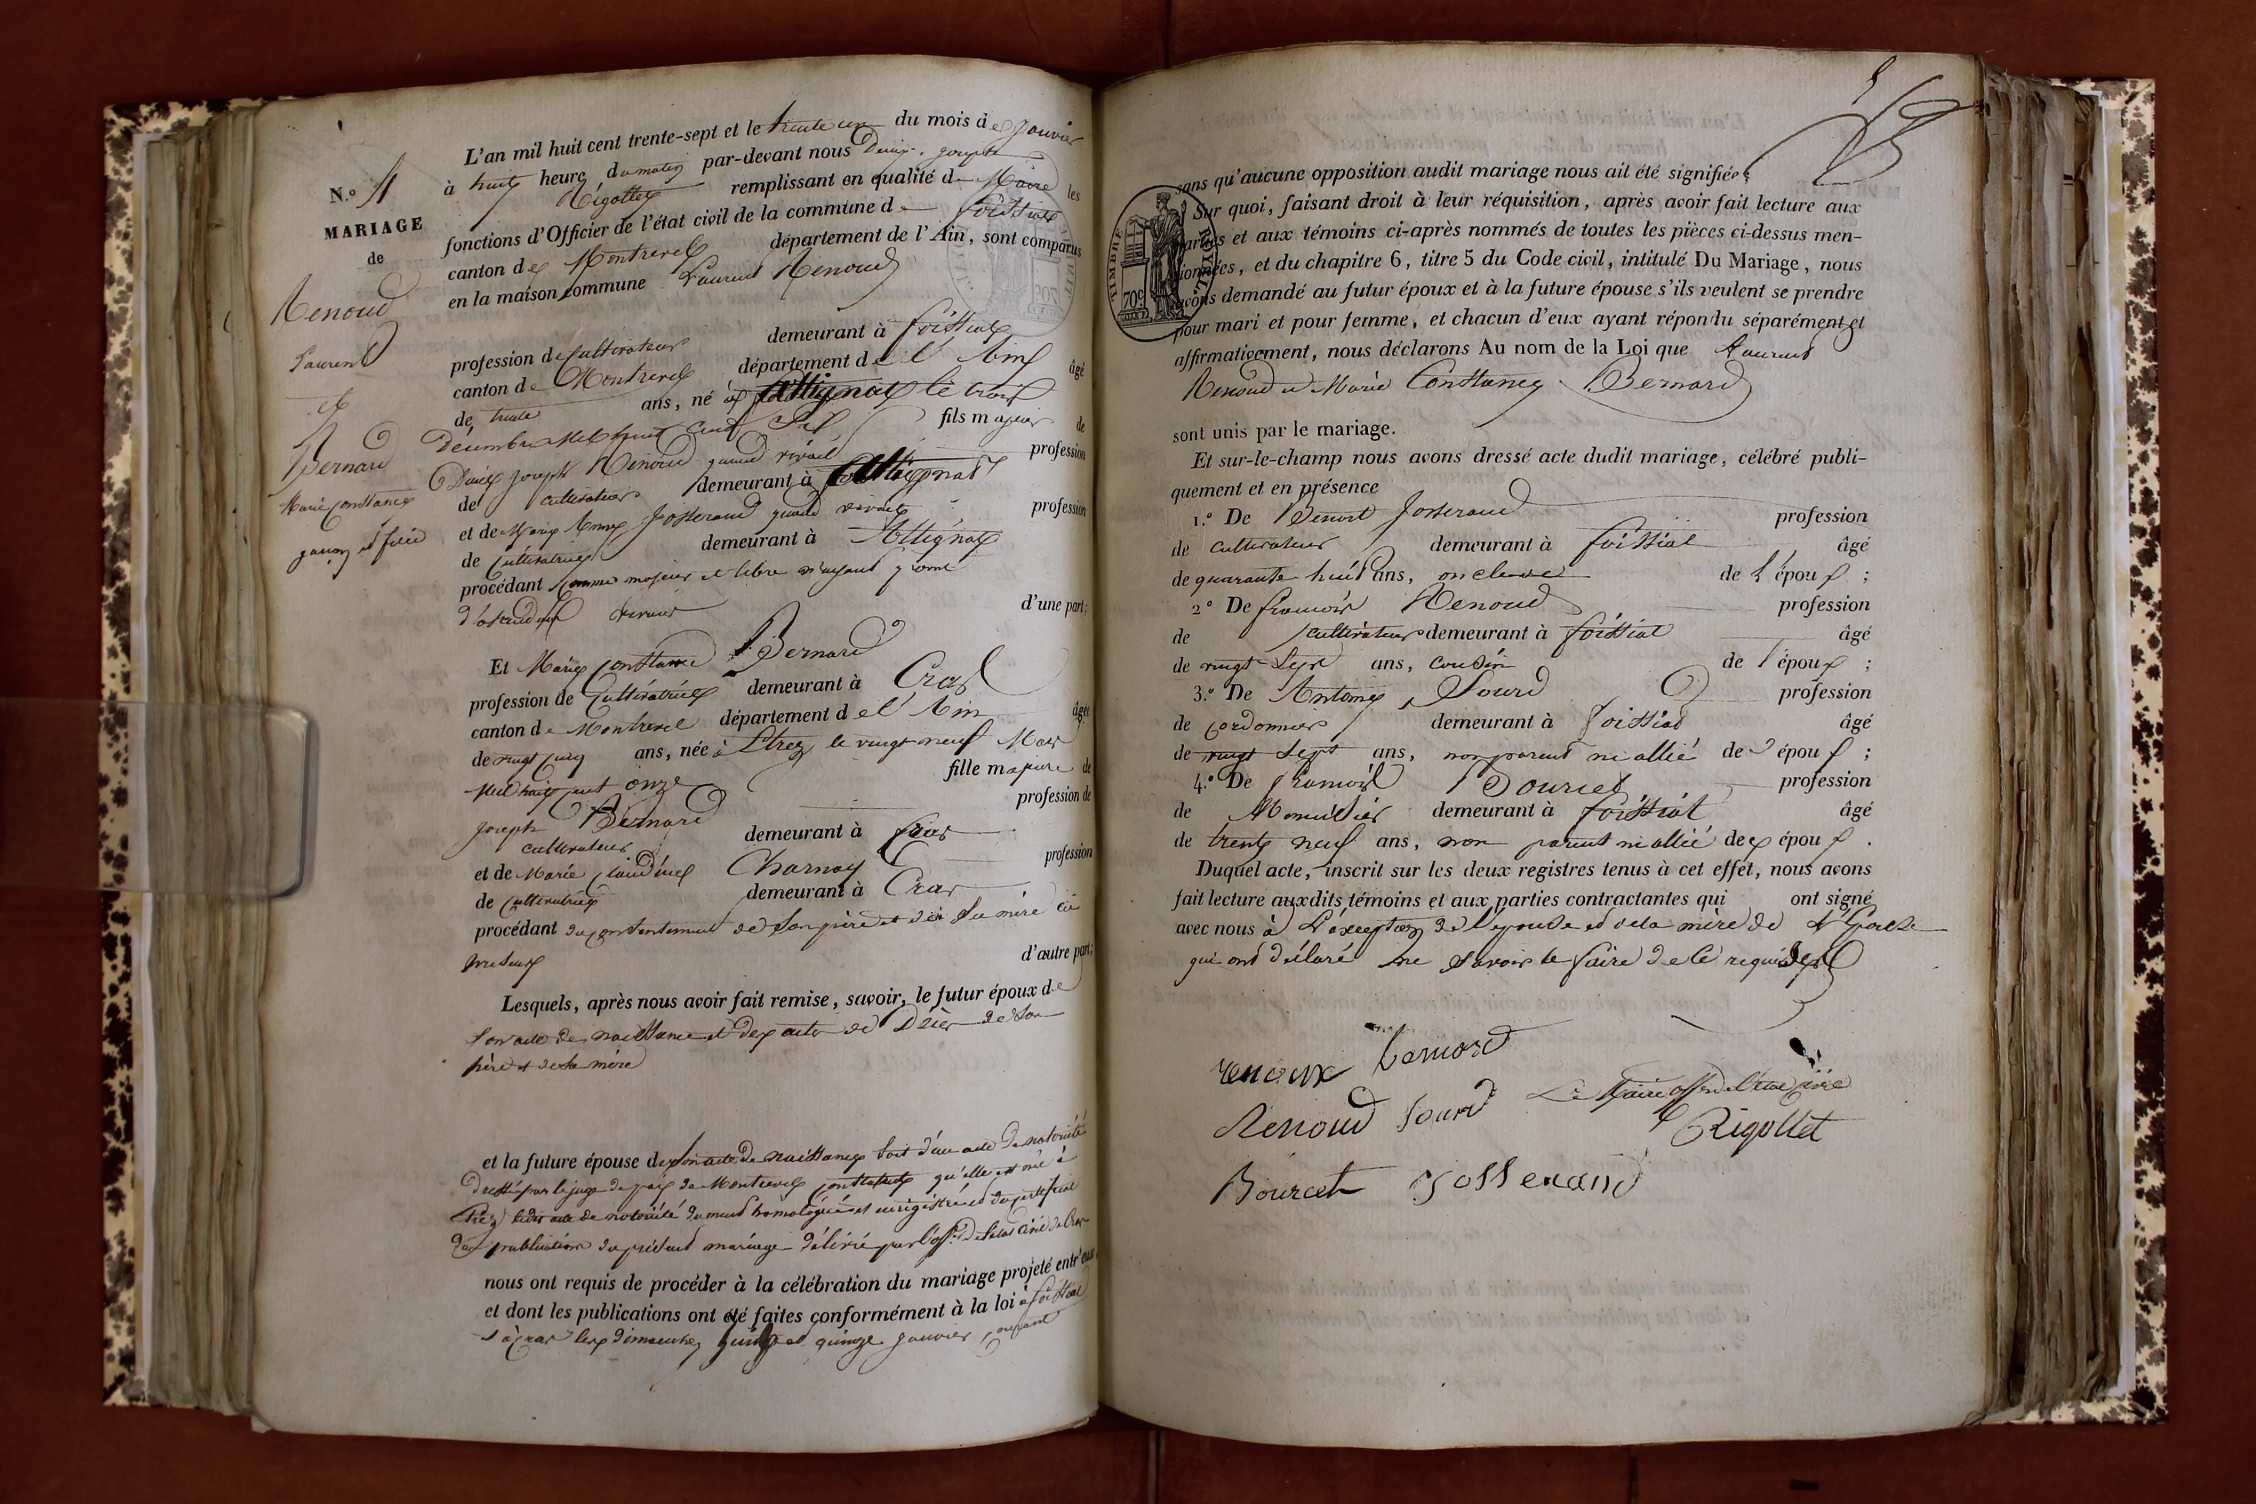 L'an mil huit cent trente-sept et le trente un du mois de janvier
à huit heures du matin par-devant nous Denis joseph
Rigollet remplissant en qualité de Maire les
fonctions d'Officier de l'état civil de la commune de foissiat
canton de Montrevel département de l'Ain, sont comparus
en la maison commune Laurent Renoud
N.º 4
MARIAGE
de
Renoud
Laurent
et
Bernard
Marie Constance
garçon et fille
demeurant à foissiat
profession de cultivateur
canton de Montrevel département de l'Ain âgé
de trente ans, né à attignat le trois
Décembre Mil huit cent six fils majeur de
Denis joseph Renoud quand vivait profession
de cultivateur demeurant à attignat
et de Marie Anne Josserand quand vivait profession
de cultivatrice demeurant à Attignat
procédant comme majeur et libre n'ayant point
d'ascendant d'une part;
Et Marie Constance Bernard
profession de Cultivatrice demeurant à Cras
canton de Montrevel département de l'Ain âgée
de vingt cinq ans, née à Etrez le vingt neuf Mars
Mil huit cent onze fille majeure de
joseph Bernard profession de
cultivateur demeurant à Cras
et de Marie Claudine Charnay profession
de Cultivatrice demeurant à Cras
procédant du consentement de son père et de sa mère ici
présents d'autre part;
Lesquels, après nous avoir fait remise, savoir, le futur époux de
son acte de naissance et des actes de Décès de son
père et de sa mère
et la future épouse de son acte de naissance soit d'un acte de notoriété
dressé par le juge de paix de Montrevel constatant qu'elle est née à
Etrez ledit acte de notoriété dument homologué et enregistré et du certificat
de publication du présent mariage délivré par l'off. de l'état civil de Cras
nous ont requis de procéder à la célébration du mariage projeté entr'eux
et dont les publications ont été faites conformément à la loi à foissiat
et à Cras les dimanches huit et quinze janvier courant
sans qu'aucune opposition audit mariage nous ait été signifiée;
Sur quoi, faisant droit à leur réquisition, après avoir fait lecture aux
parties et aux témoins ci-après nommés de toutes les pièces ci-dessus men-
tionnées, et du chapitre 6, titre 5 du Code civil, intitulé Du Mariage, nous
avons demandé au futur époux et à la future épouse s'ils veulent se prendre
pour mari et pour femme, et chacun d'eux ayant répondu séparément et
affirmativement, nous déclarons Au nom de la Loi que Laurent
Renoud et Marie Constance Bernard
sont unis par le mariage.
Et sur-le-champ nous avons dressé acte dudit mariage, célébré publi-
quement et en présence
1.º De Benoit Josserand profession
de cultivateur demeurant à foissiat âgé
de quarante huit ans, oncle de l'époux;
2º De françois Renoud profession
de cultivateur demeurant à foissiat âgé
de vingt sept ans, cousin de l'époux;
3.º De Antoine Sourd profession
de cordonnier demeurant à foissiat âgé
de vingt sept ans, non parent ni allié de l'époux;
4.º De françois Bourcet profession
de Menuisier demeurant à foissiat âgé
de trente neuf ans, non parent ni allié des époux.
Duquel acte, inscrit sur les deux registres tenus à cet effet, nous avons
fait lecture auxdits témoins et aux parties contractantes qui ont signé
avec nous à L'exception de l'épouse et de la mère de l'épouse
qui ont déclaré ne savoir le faire de ce requises
TIMBRE ROYAL
70c
renoux bernard
Renoud Sourd Le Maire off. de l'état civil
Rigollet
Bourcet Josserand